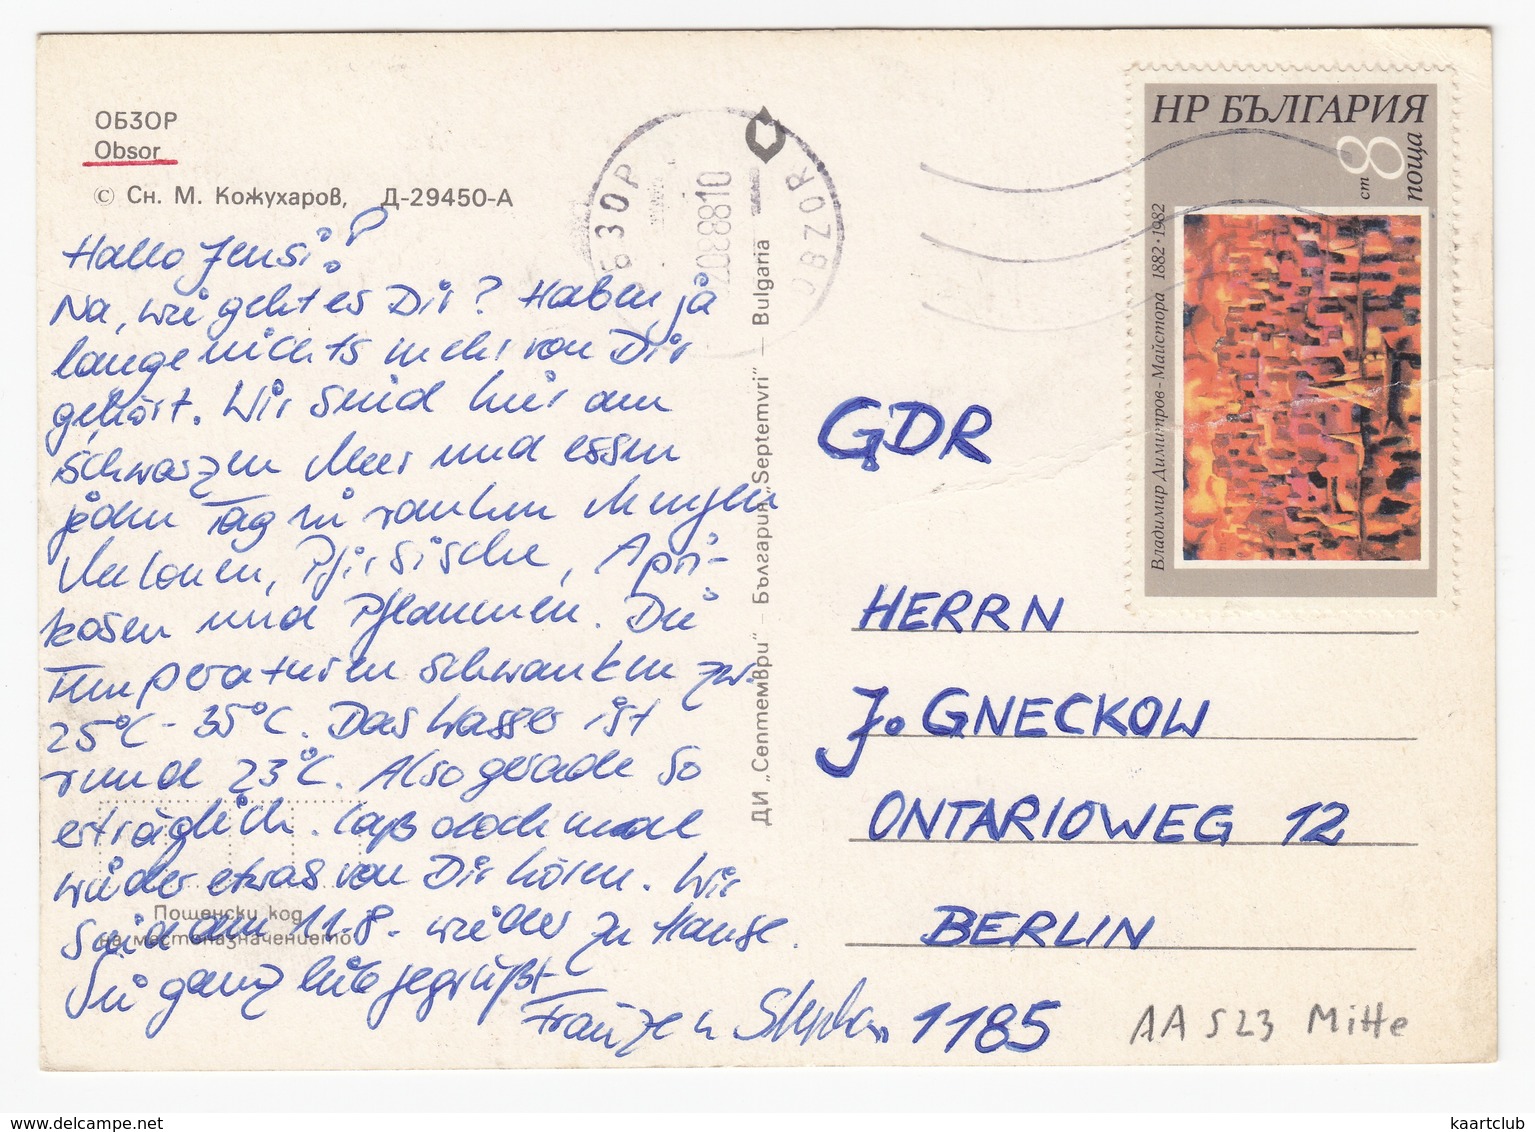 ОБЗОР
Obsor
© Сн. М. Кожухаров, Д-29450-А
Hallo Jensi!
Na, wie geht es Dir? Haben ja
lange nichts mehr von Dir
gehört. Wir sind hier am
schwarzen Meer und essen
jeden Tag in rauhen Mengen
Melonen, Pfirsische, Apri-
kosen und Pflaumen. Die
Temperaturen schwanken zw.
25°C - 35°C. Das Wasser ist
rund 23°C. Also gerade so
erträglich. Laß doch mal
wieder etwas von Dir hören. Wir
sind am 11.8. wieder zu Hause.
Sei ganz lieb gegrüßt
Stephan
Пощенски код
на местоназначението
ДИ „Септември" – България „Septemvri" – Bulgaria
ОБЗОР
OBZOR
НР БЪЛГАРИЯ
8 ст
поща
Владимир Димитров - Майстора 1882·1982
GDR
HERRN
J. GNECKOW
ONTARIOWEG 12
BERLIN
1185
AA 523 Mitte
kaartclub